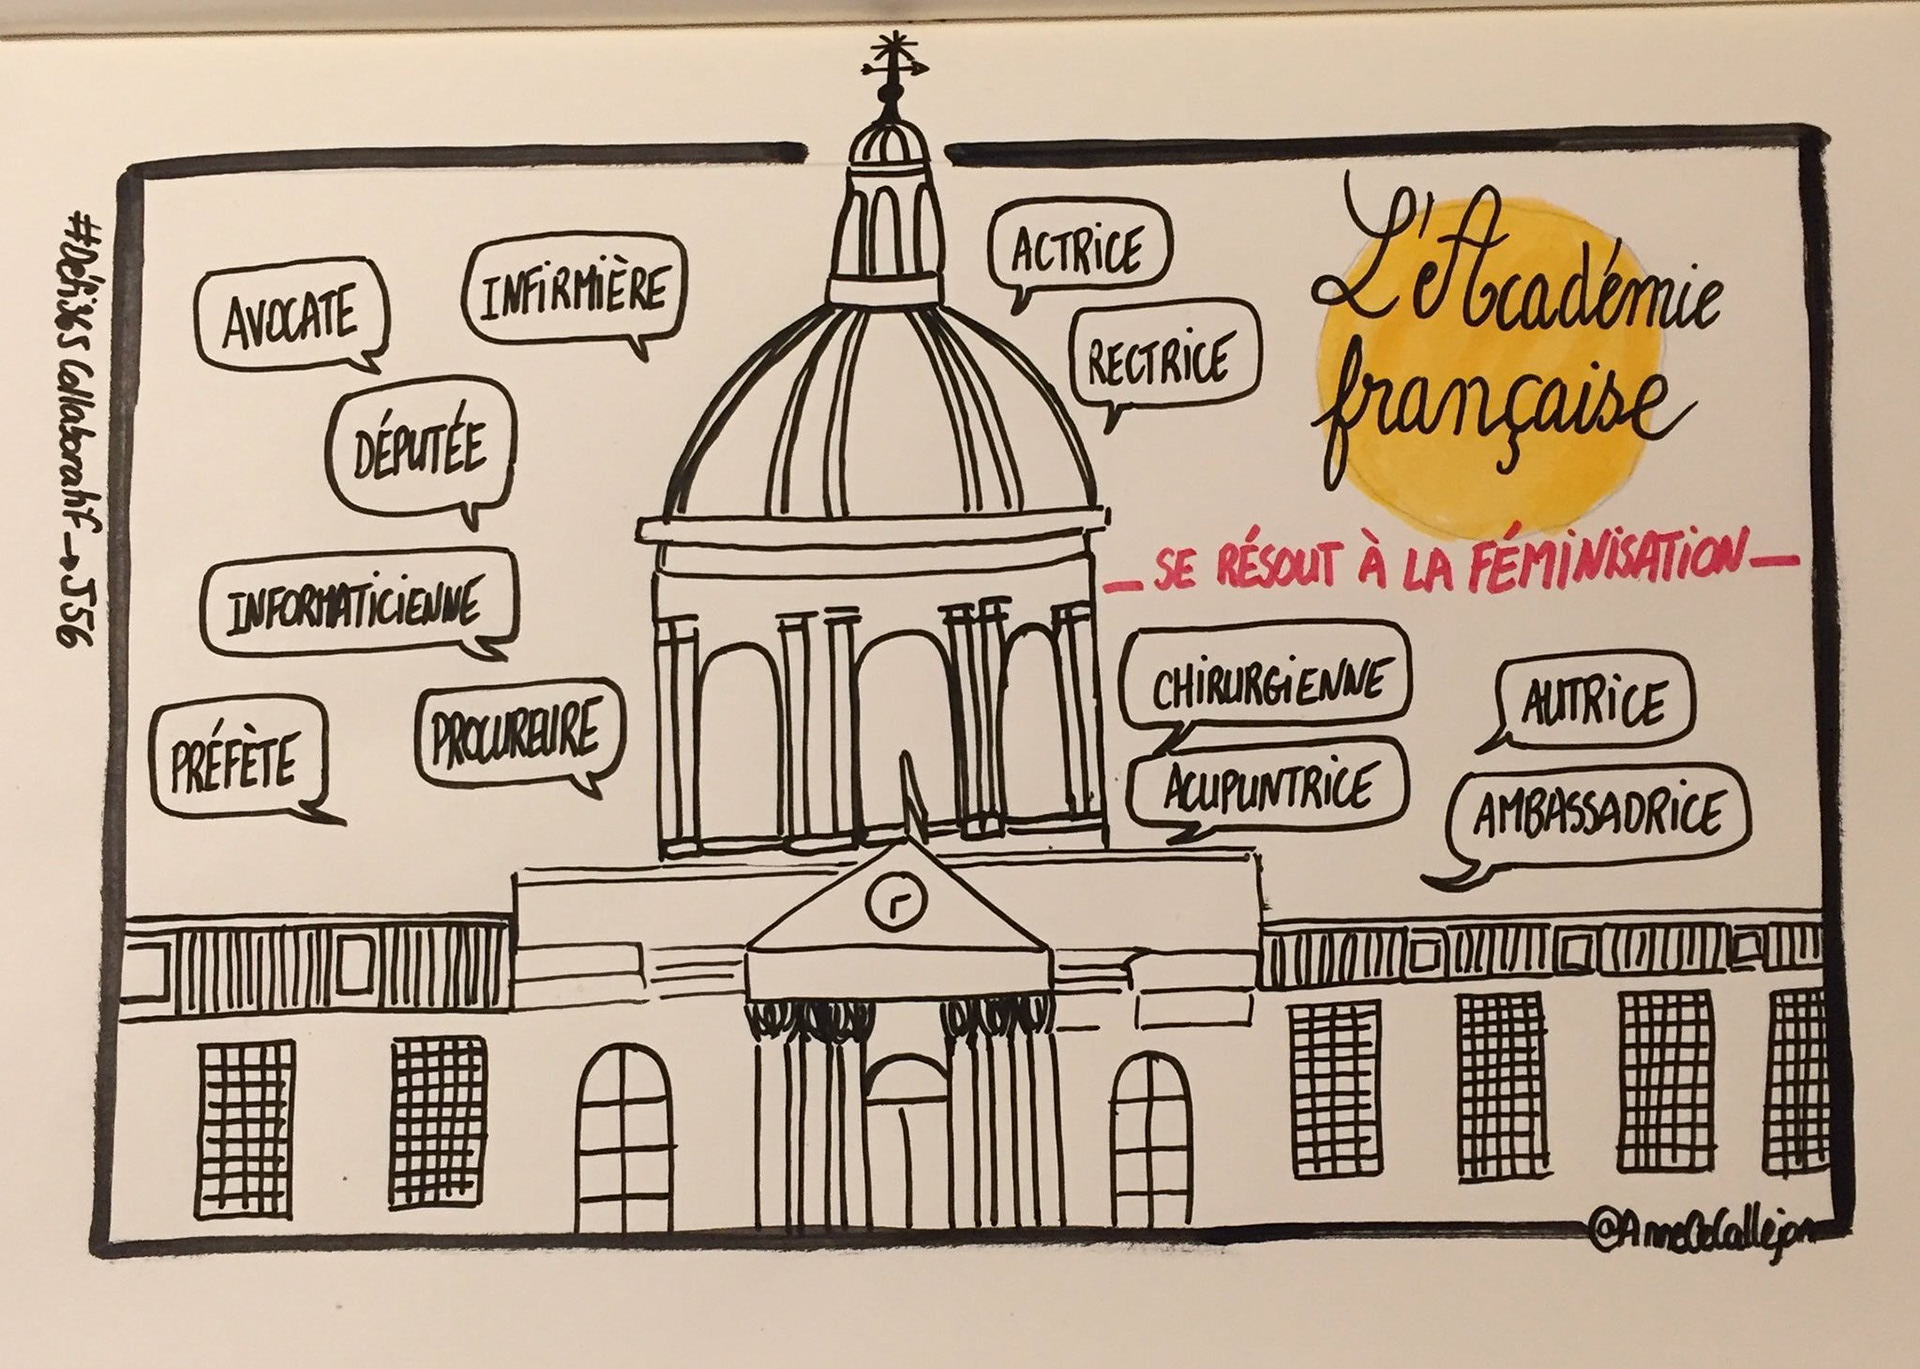 #Défi365 Collaboratif → J556
AVOCATE
INFIRMIÈRE
ACTRICE
RECTRICE
L'Académie
française
DÉPUTÉE
SE RÉSOUT À LA FÉMINISATION
INFORMATICIENNE
PRÉFÈTE
PROCUREURE
CHIRURGIENNE
AUTRICE
ACUPUNTRICE
AMBASSADRICE
@AnneDeCallejon